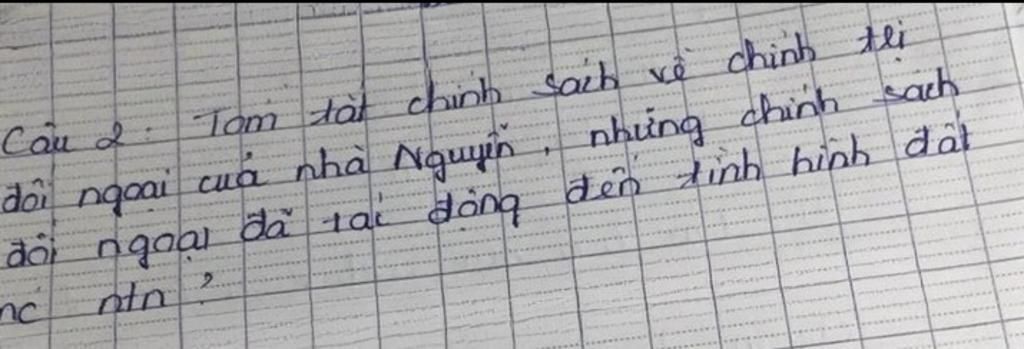 Câu 2: Tóm tắt chính sách về chính trị
đối ngoại của nhà Nguyễn, những chính sách
đối ngoại đã tác động đến tình hình đất
nc ntn?